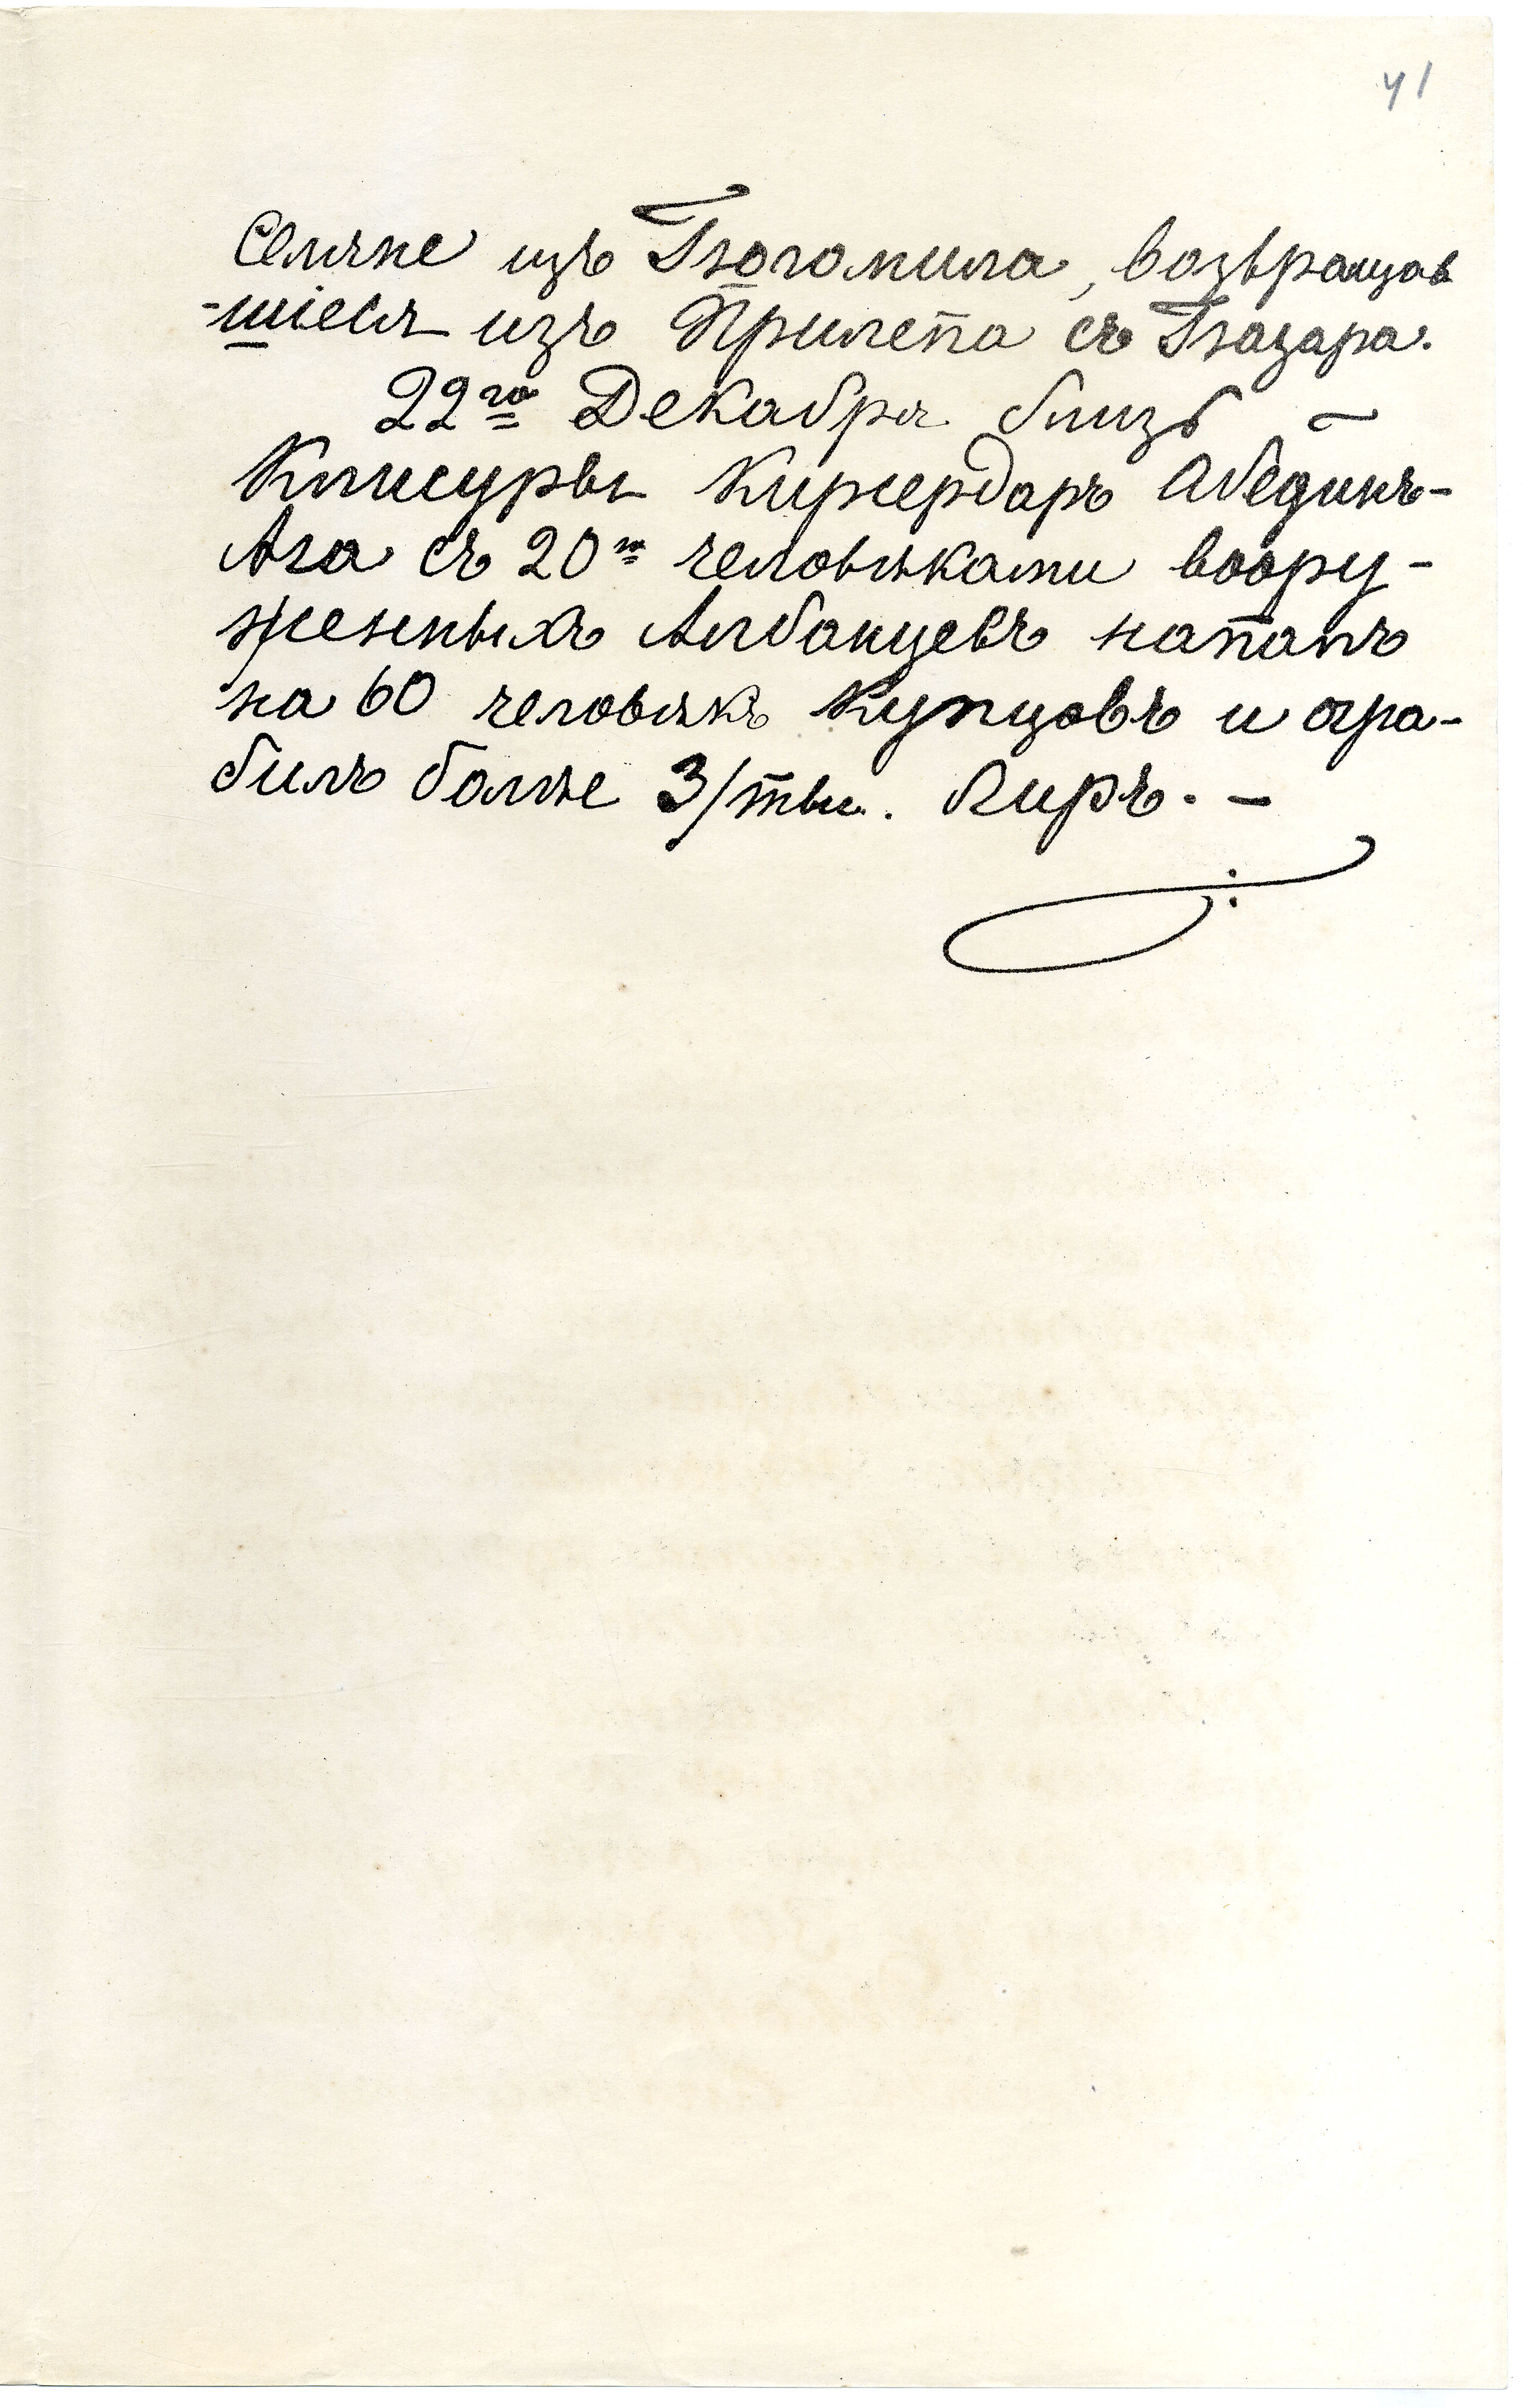 41
селяне изъ Богомила, возвращав
-шіеся изъ Прилепа съ Базара.
22го Декабря близь –
Клисуры Киржердаръ Абединъ-
Ага съ 20ю человѣками воору-
женныхъ Албанцевъ напалъ
на 60 человѣкъ купцовъ и огра-
билъ болѣе 3/тыс. Лиръ. –